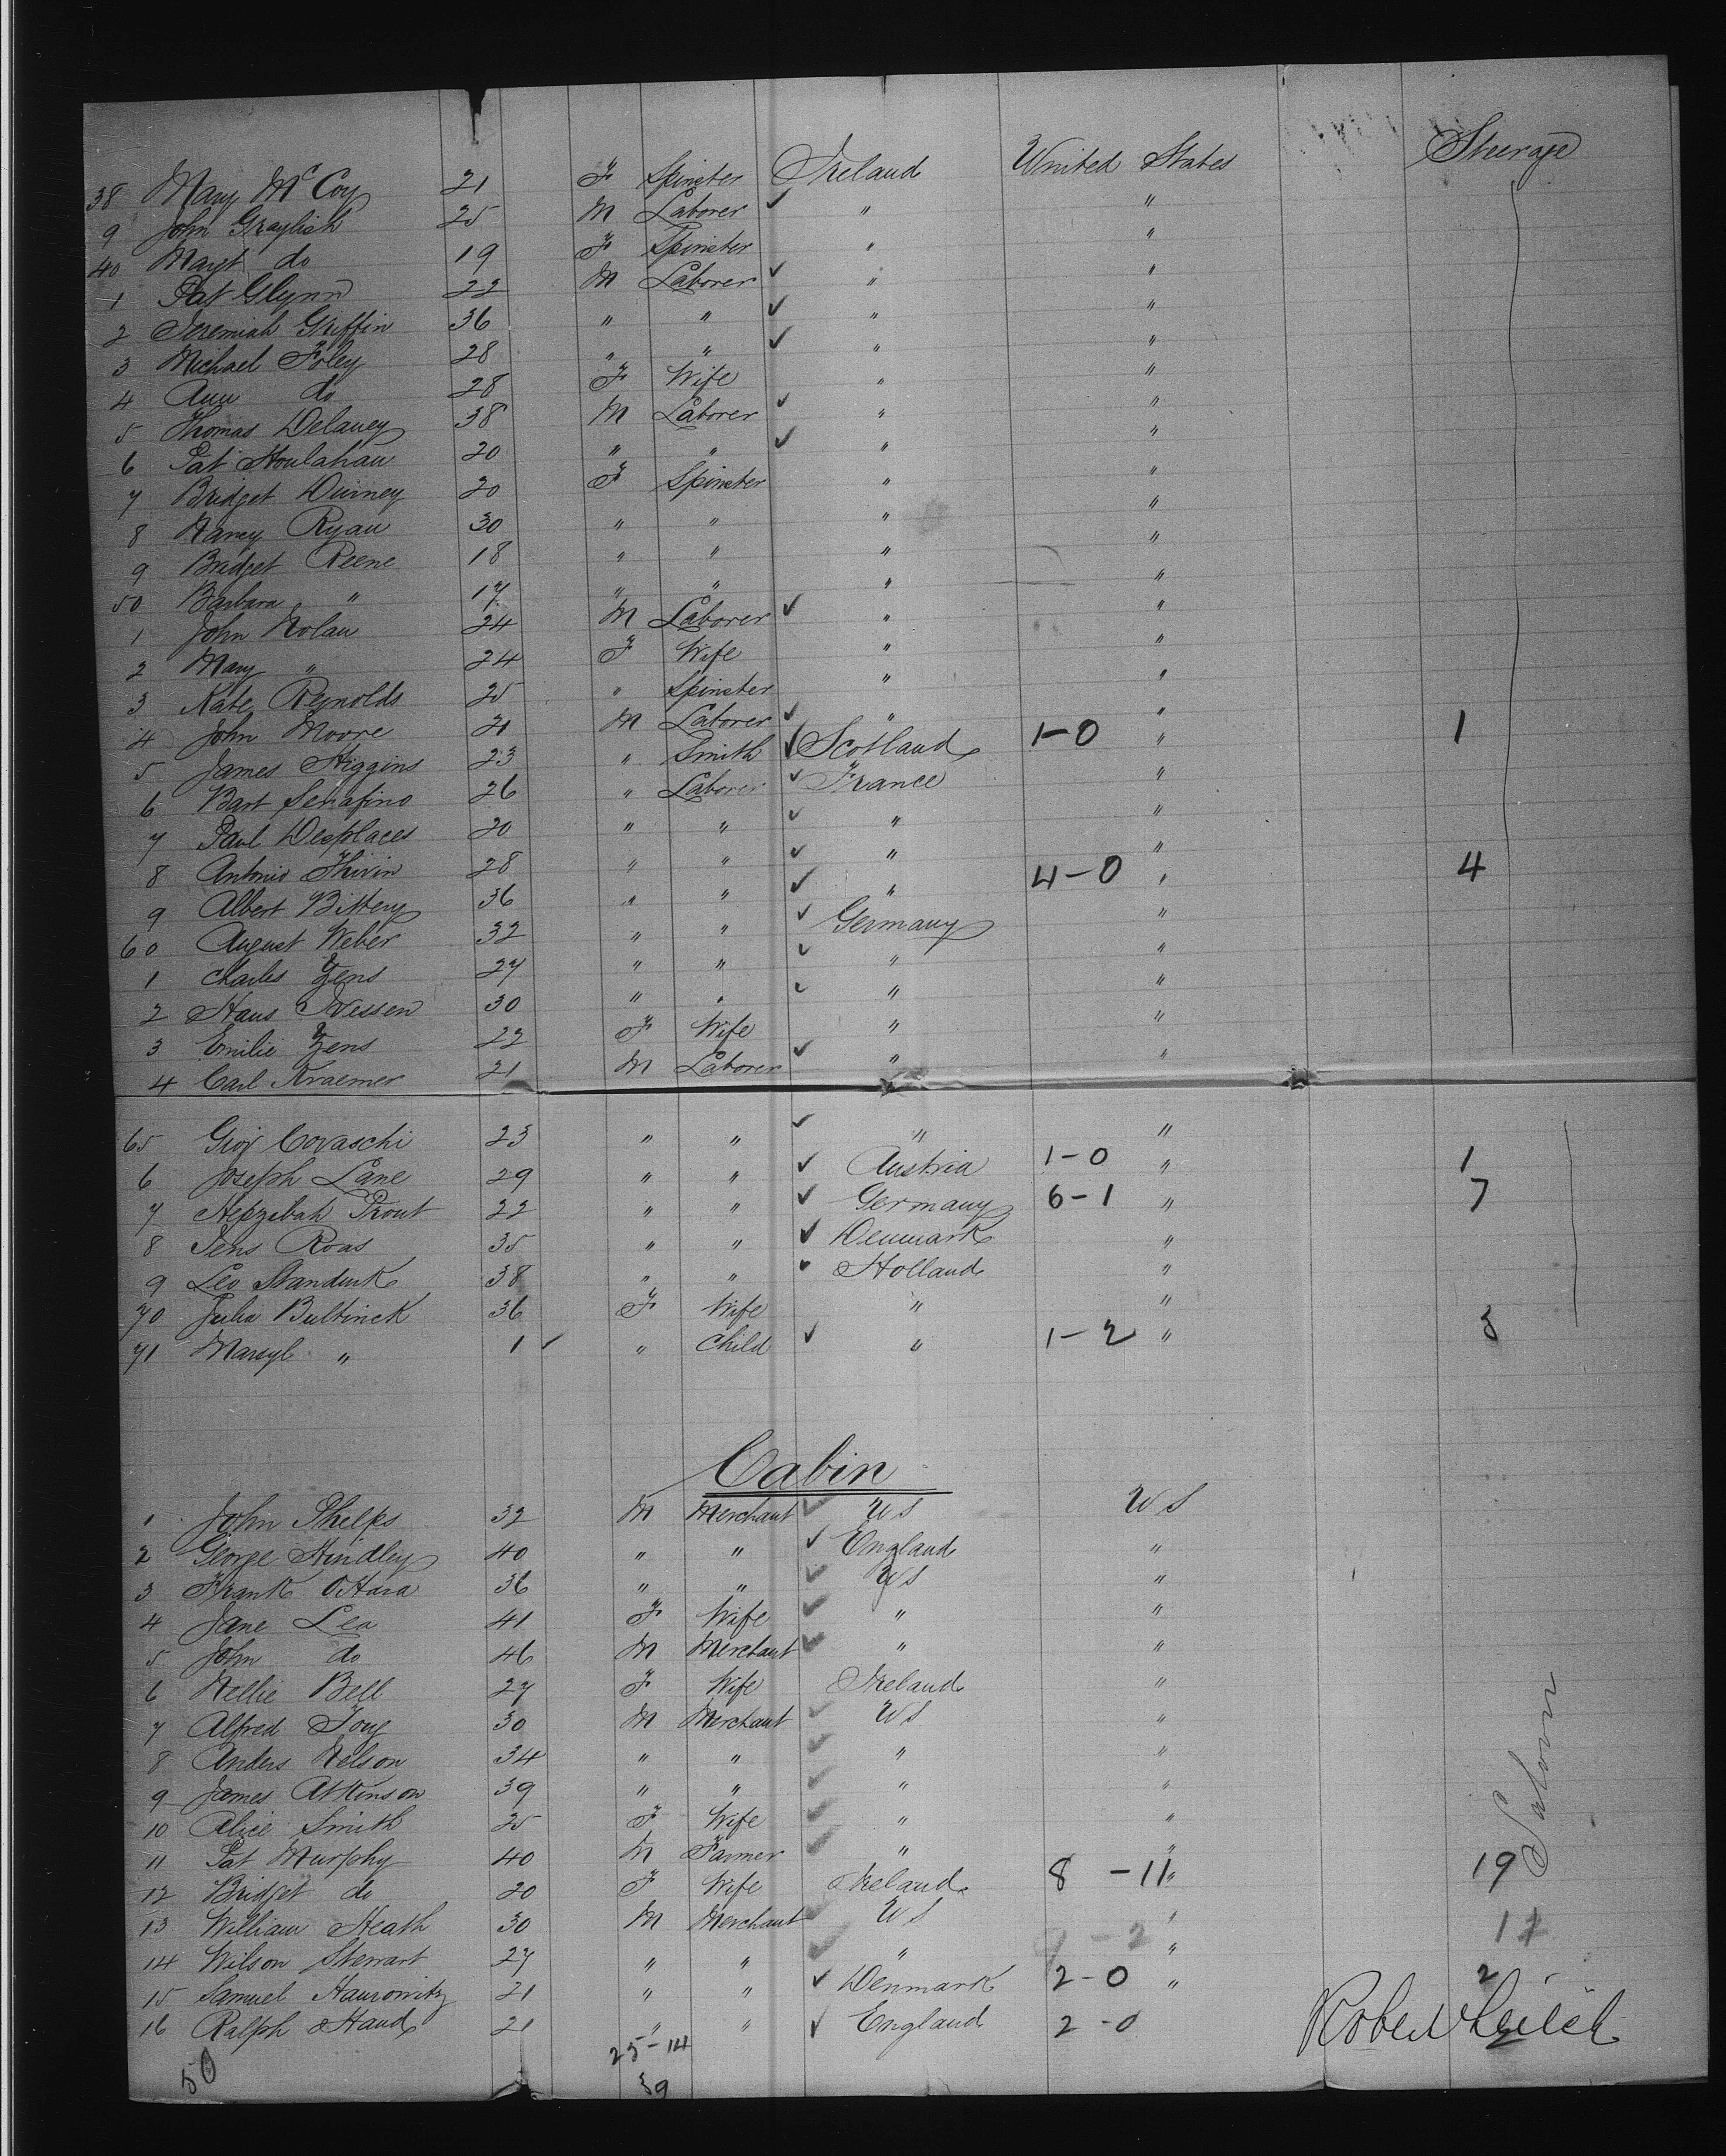 38 Mary McCoy 21 F Spinster Ireland United States Steerage
9 John Graylish 25 M Laborer ✓ " "
40 Margt do 19 F Spinster " "
1 Pat Glynn 22 M Laborer ✓ " "
2 Jeremiah Griffin 36 " " ✓ " "
3 Michael Foley 28 " " ✓ " "
4 Ann do 28 F Wife " "
5 Thomas Delaney 38 M Laborer ✓ " "
6 Pat Houlahan 20 " " ✓ " "
7 Bridget Durney 20 F Spinster " "
8 Nancy Ryan 30 " " " "
9 Bridget Reene 18 " " " "
50 Barbara " 17 " " " "
1 John Nolan 24 M Laborer ✓ " "
2 Mary " 24 F Wife " "
3 Kate Reynolds 25 " Spinster " "
4 John Moore 21 M Laborer ✓ " "
5 James Higgins 23 " Smith ✓ Scotland 1-0 " 1
6 Bart Serafino 26 " Laborer ✓ France "
7 Paul Desplaces 20 " " ✓ " "
8 Antonio Thirin 28 " " ✓ " "
9 Albert Bittery 36 " " ✓ " 4-0 " 4
60 August Weber 32 " " ✓ Germany "
1 Charles Zens 27 " " ✓ " "
2 Hans Nessen 30 " " ✓ " "
3 Emilie Zens 22 F Wife " "
4 Carl Kraemer 21 M Laborer ✓ " "
65 Giov Covaschi 23 " " ✓ " "
6 Joseph Lane 29 " " ✓ Austria 1-0 " 1
7 Hepzibah Prout 22 " " ✓ Germany 6-1 " 7
8 Jens Roas 35 " " ✓ Denmark "
9 Leo 38 " " ✓ Holland "
70 Julia Bultinck 36 F Wife " "
71 " 1 ✓ " Child ✓ " 1-2 " 3
Cabin
1 John Phelps 32 M Merchant ✓ US US
2 George Hindley 40 " " ✓ England "
3 Frank OHara 36 " " ✓ US "
4 Jane Lea 41 F Wife ✓ " "
5 John do 46 M Merchant ✓ " "
6 Nellie Bell 27 F Wife Ireland "
7 Alfred 30 M Merchant ✓ US "
8 Anders Nelson 34 " " ✓ " "
9 James Atkinson 39 " " ✓ " "
10 Alice Smith 25 F Wife ✓ " "
11 Pat Murphy 40 M Farmer ✓ " " Saloon
12 Bridget do 20 F Wife Ireland 8 -11 " 19
13 William Heath 30 M Merchant ✓ US "
14 Wilson Sterrart 27 " " ✓ " - 2 "
15 Samuel Haurowitz 21 " " ✓ Denmark 2-0 " 2
16 Ralph Hand 21 " " ✓ England 2-0
25-14
50
39